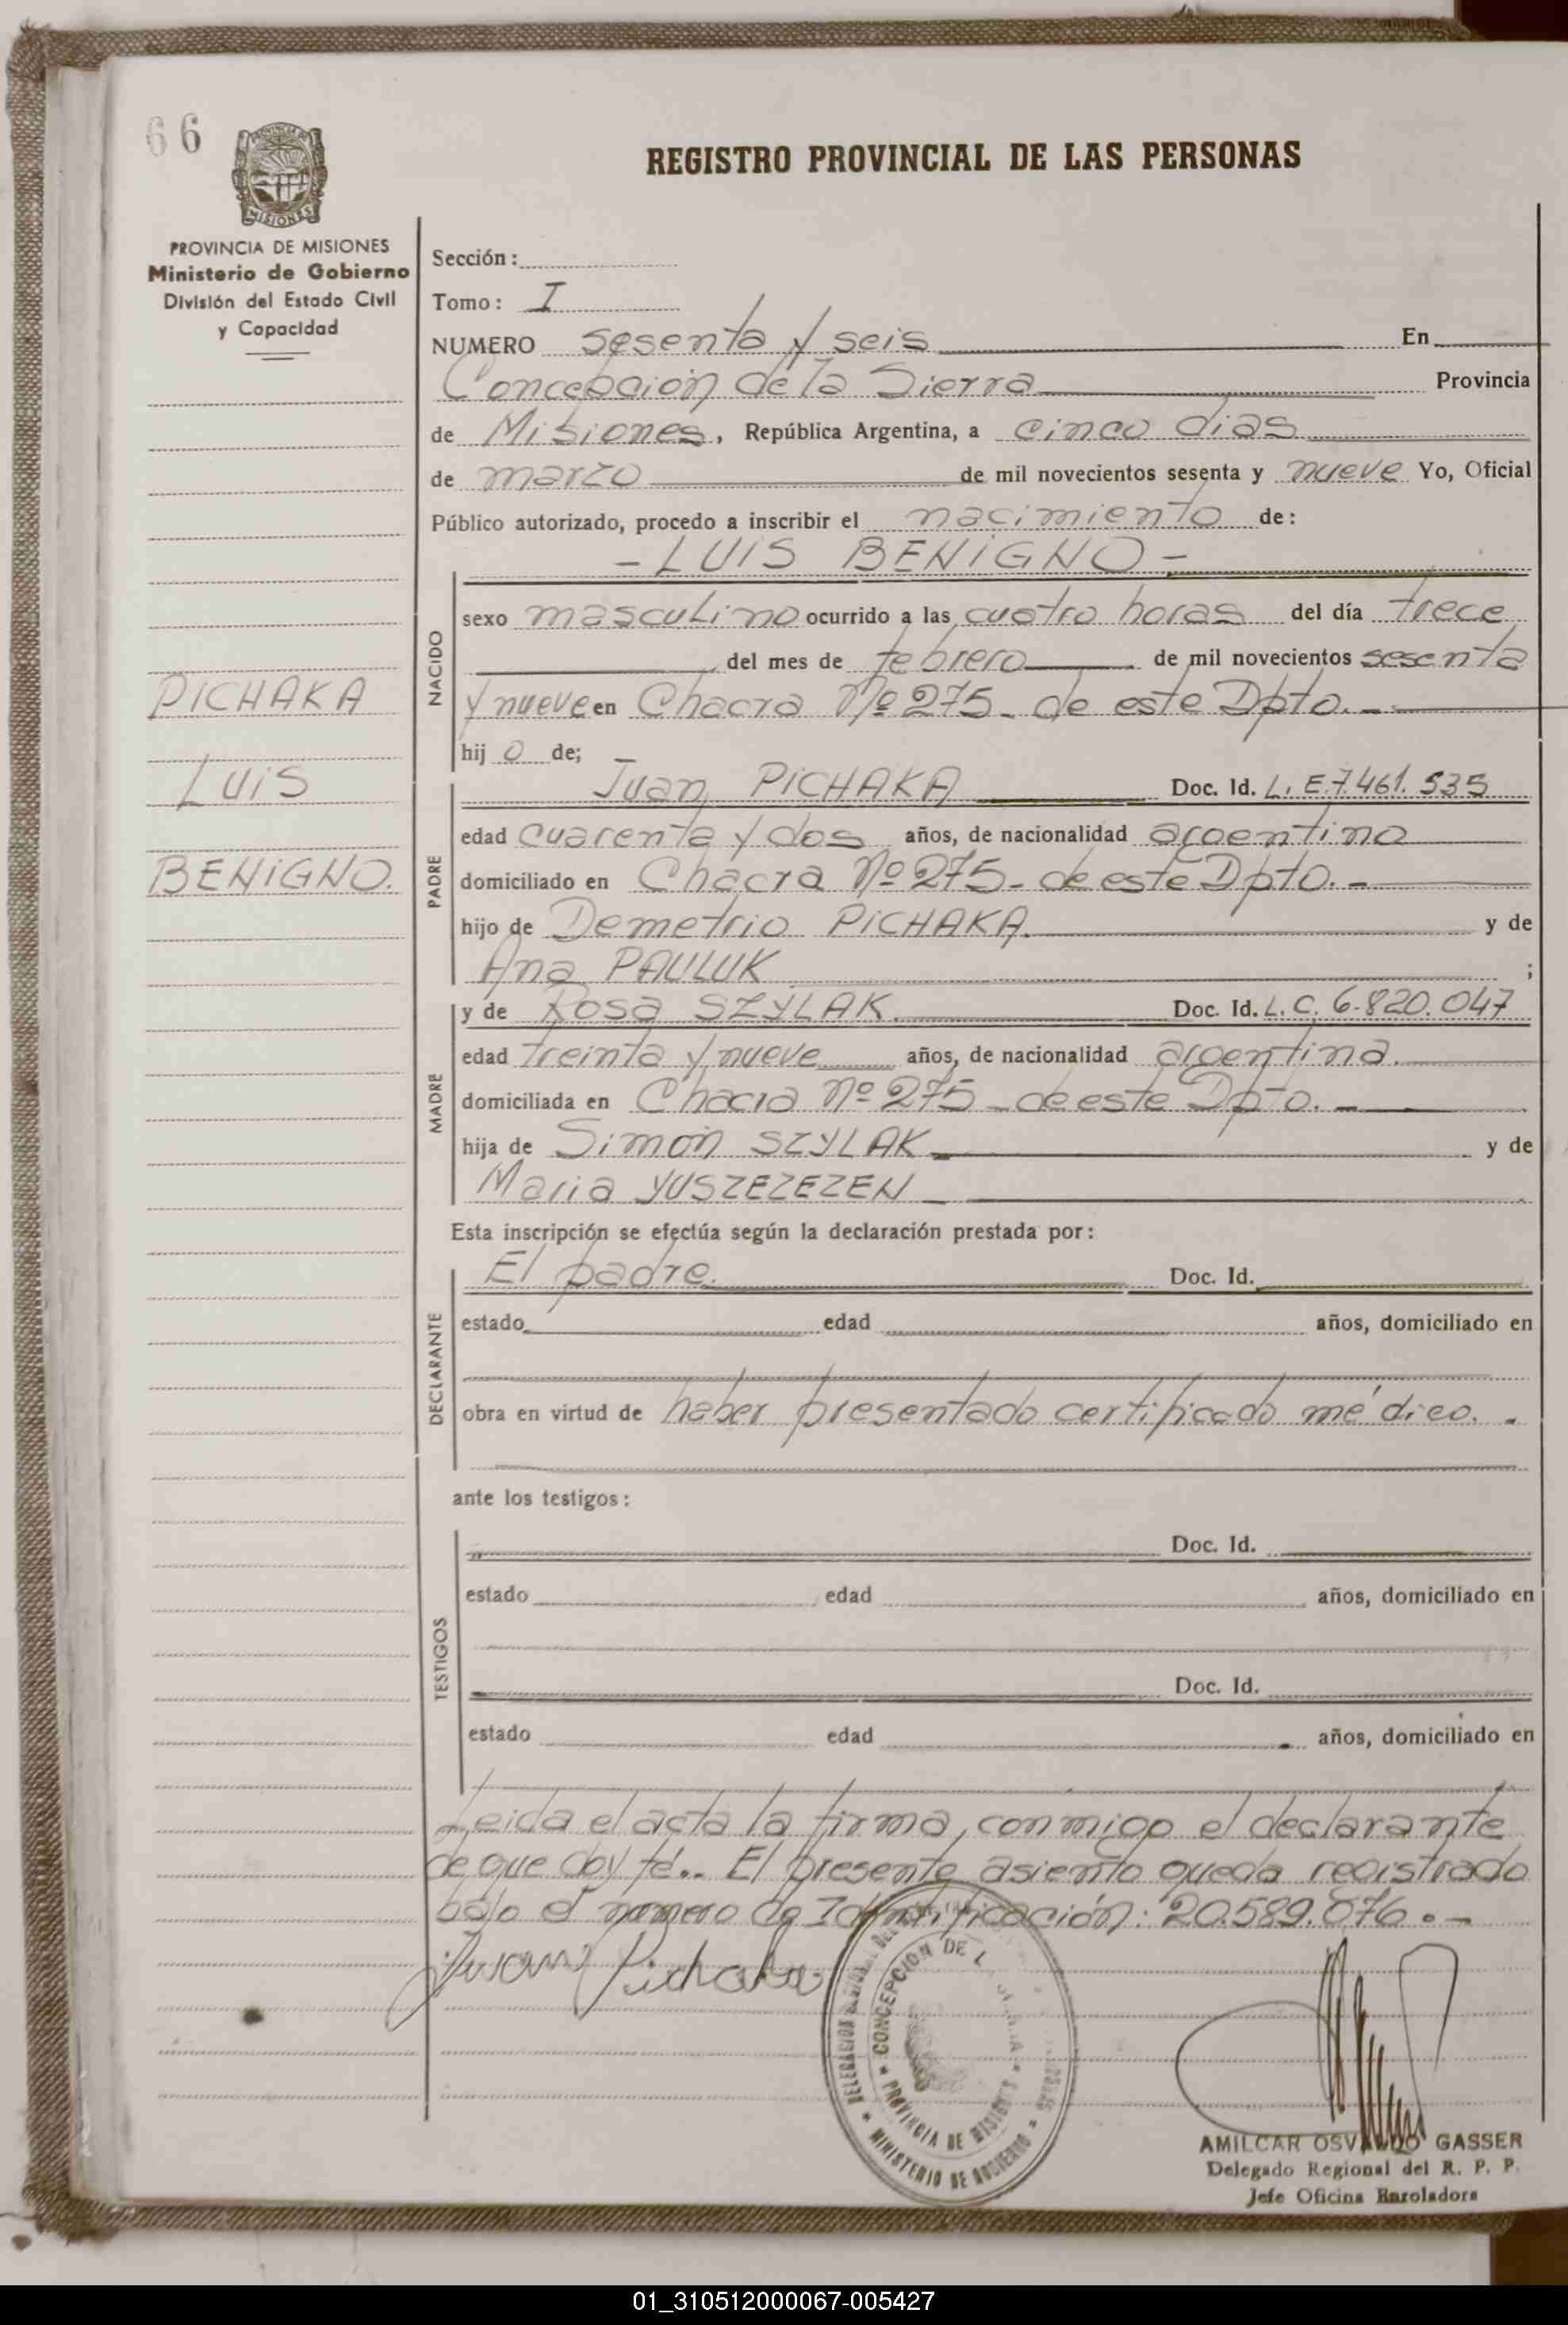 66
REGISTRO PROVINCIAL DE LAS PERSONAS
PROVINCIA DE MISIONES
Ministerio de Gobierno
División del Estado Civil
y Capacidad
Sección:
Tomo: I
NUMERO sesenta y seis En
Concepción de la Sierra Provincia
de Misiones, República Argentina, a cinco dias
de marzo de mil novecientos sesenta y nueve Yo, Oficial
Público autorizado, procedo a inscribir el nacimiento de:
- LUIS BENIGNO -
NACIDO
sexo masculino ocurrido a las cuatro horas del día trece
del mes de febrero de mil novecientos sesenta
y nueve en Chacra Nº 275 - de este Dpto. -
hij o de;
PICHAKA
LUIS
BENIGNO.
PADRE
Juan PICHAKA Doc. Id. L. E. 7.461.535
edad cuarenta y dos años, de nacionalidad argentino
domiciliado en Chacra Nº 275 - de este Dpto. -
hijo de Demetrio PICHAKA y de
Ana PAULUK ;
MADRE
y de Rosa SZYLAK. Doc. Id. L. C. 6.820.047
edad treinta y nueve años, de nacionalidad argentina.
domiciliada en Chacra Nº 275 - de este Dpto. -
hija de Simón SZYLAK y de
Maria YUSZEZEZEN
Esta inscripción se efectúa según la declaración prestada por:
DECLARANTE
El padre. Doc. Id.
estado edad años, domiciliado en
obra en virtud de haber presentado certificado médico. .
ante los testigos:
TESTIGOS
Doc. Id.
estado edad años, domiciliado en
Doc. Id.
estado edad años, domiciliado en
Leida el acta la firma, conmigo el declarante
de que doy fé.. El presente asiento queda registrado
bajo el número de Identificación: 20.589.076. -
Juan Pichaka
CONCEPCION DE L
* PROVINCIA DE MISIONES *
* MINISTERIO DE GOBIERNO *
AMILCAR OSVALDO GASSER
Delegado Regional del R. P. P.
Jefe Oficina Enroladora
01_310512000067-005427